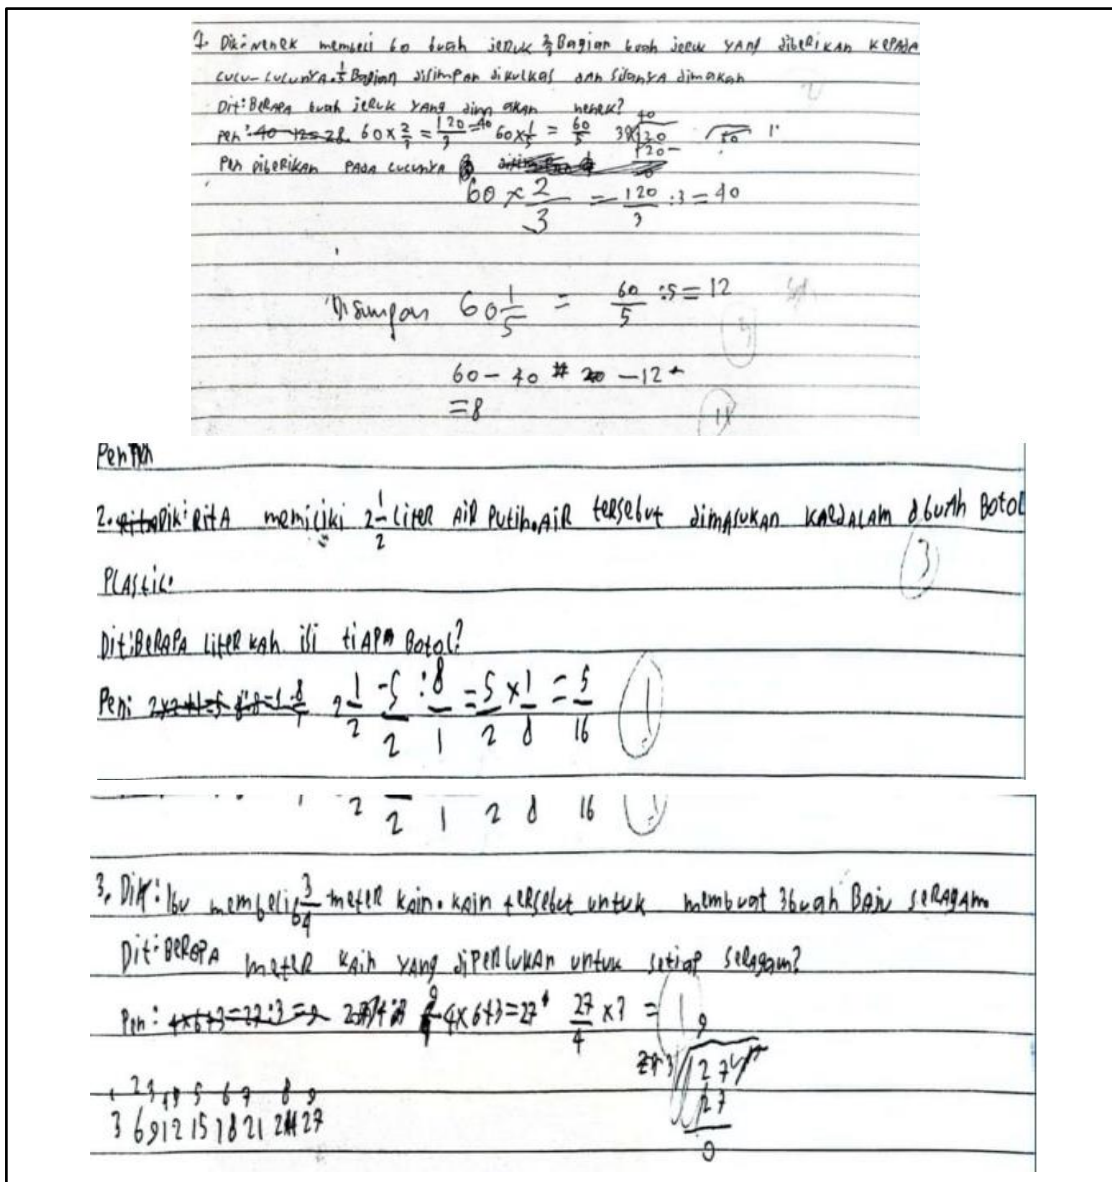 1. Dik: Nenek membeli 60 buah jeruk 2/3 Bagian buah jeruk YANG diberikan KEPADA
cucu-cucunya. 1/5 Bagian disimpan dikulkas dan sisanya dimakan
Dit: BERAPA buah jeruk YANG dimakan nenek?
Pen: 40-12=28 60 x 2/3 = 120/3 = 40 60 x 1/5 = 60/5
Pen DibERiKan PADA cucunya
60 x 2/3 = 120/3 :3 = 40
60 1/5 = 60/5 :5 = 12
60 - 40 20 - 12
= 8
2. Dik: RitA memiliki 2 1/2 Liter AiR Putih. AiR teRsebut dimasukan 8 buah Botol
Dit: BERAPA liter kah isi tiap Botol?
Pen: 2 1/2 = 5/2 : 8/1 = 5/2 x 1/8 = 5/16
1
2 2 1 2 8 16
3. Dik: Ibu membeli 6 3/4 meteR kain. kain teRsebut untuk membuat 3 buah Baju seRAgam
Dit: BERAPA meteR kain YANG dipeRlukan untuk setiap seRagam?
Pen: 4x6+3=27:3=9 4x6+3=27 27/4 x ? =
9
27
27
0
1 2 3 4 5 6 7 8 9
3 6 9 12 15 18 21 24 27